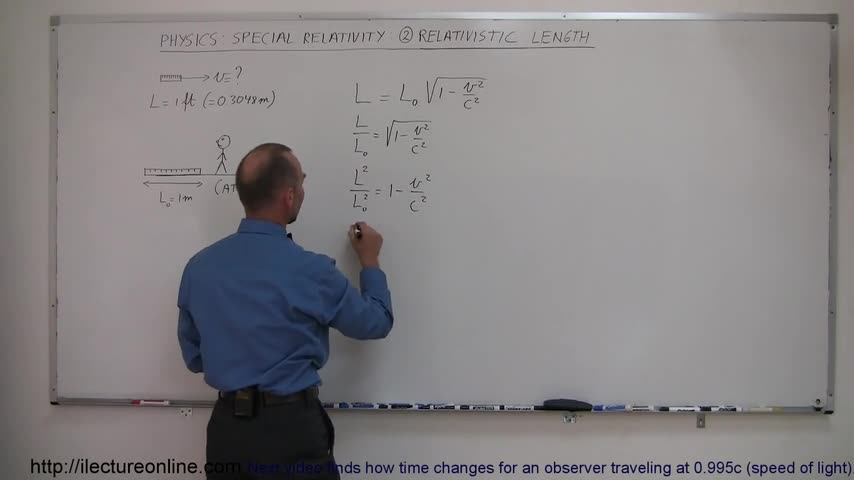 PHYSICS: SPECIAL RELATIVITY ② RELATIVISTIC LENGTH
v=?
L = 1 ft (=0.3048m)
L₀ = 1m
(AT
L = L₀ √(1 - v²/c²)
L/L₀ = √(1 - v²/c²)
L²/L₀² = 1 - v²/c²
http://ilectureonline.com Next video finds how time changes for an observer traveling at 0.995c (speed of light)